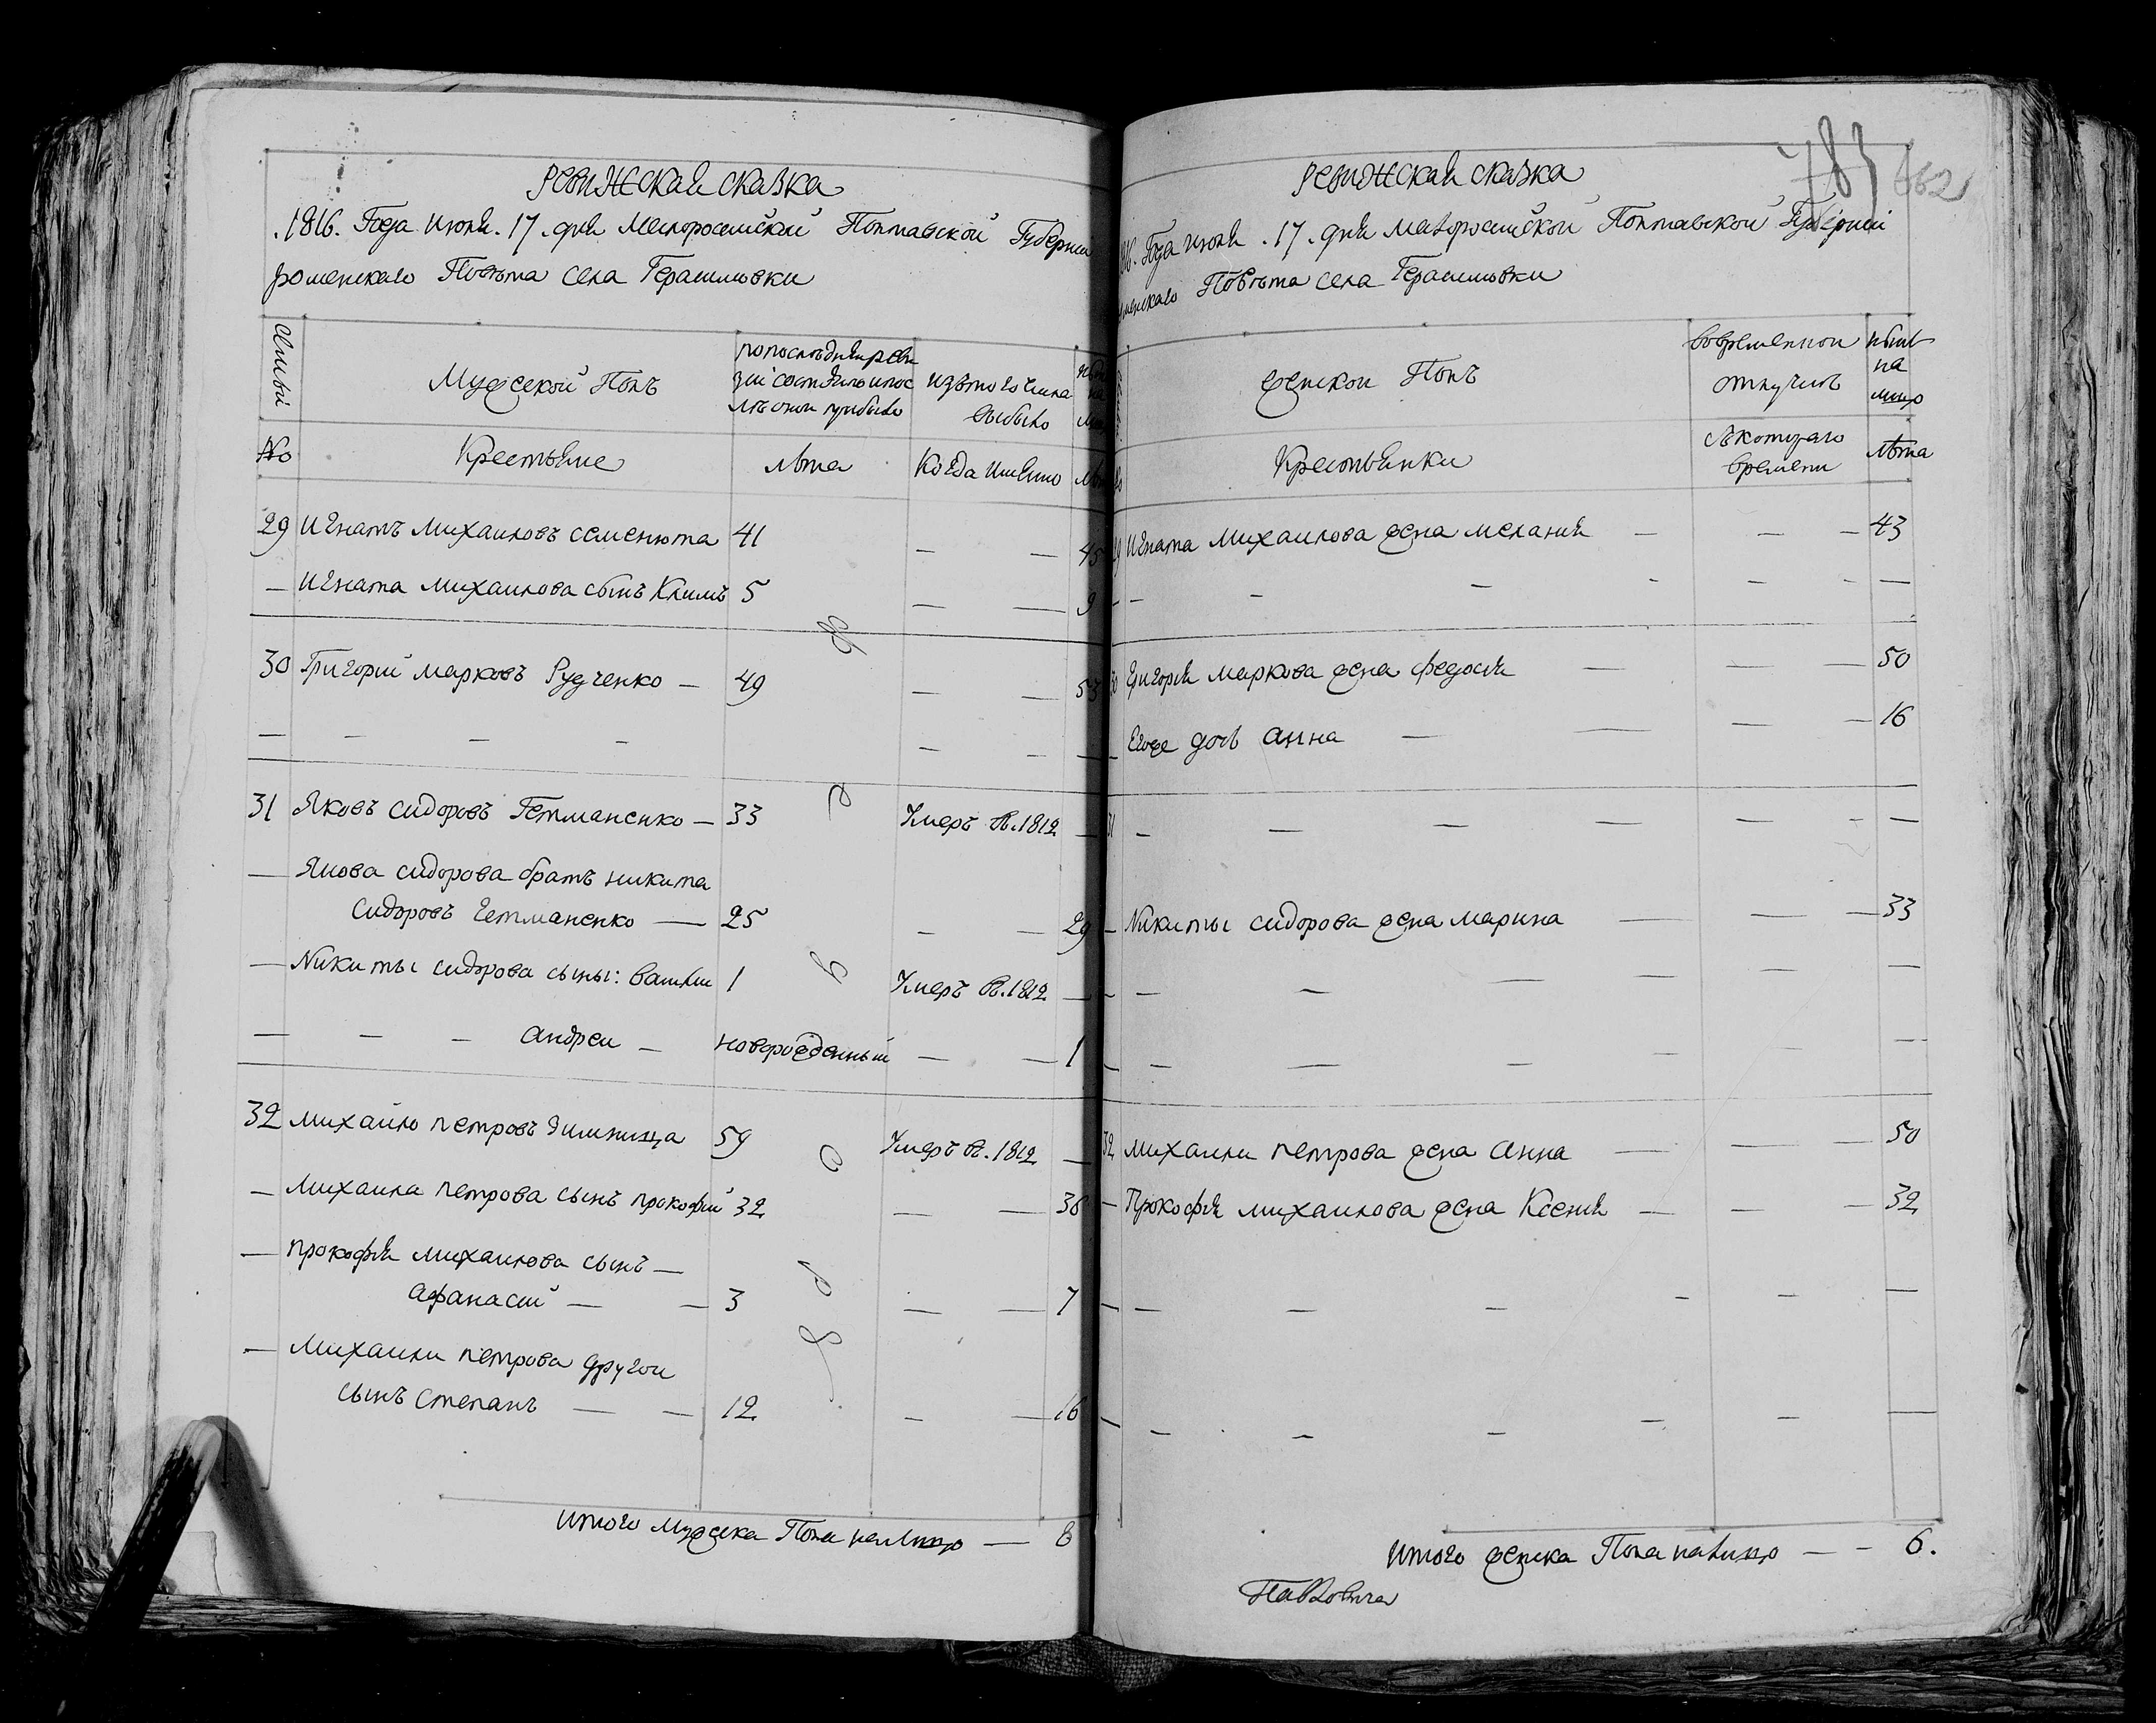 Ревижская сказка
1816. Года июня. 17. дня Малоросийской Полтавской Губернии
роменскаго Повѣта села Герасимовки
Семьи
Мужеской Полъ
попоследней реви
зии состояло и пос
лѣ онои прибыло
изътого числа
выбыло
№
Крестьяне
лѣта
Когда имянно
29 Игнатъ Михаиловъ семенюта 41 — — 45
— Игната михаилова сынъ Климъ 5 — — 9
30 Григорий марковъ Рудченко — 49 — — 53
— — — — — — —
31 Яковъ сидоровъ Гетманенко — 33 Умеръ в.1812 —
— Якова сидорова братъ никита
сидоровъ гетманенко — 25 — — 29
— Никиты сидорова сыны: василии 1 Умеръ в.1812 —
— — — андреи — новорожденный — — 1
32 михайло петровъ зимница 59 Умеръ в.1812 —
— Михаила петрова сынъ прокофий 32 — — 36
— прокофия михаилова сынъ —
афанасий — — 3 — — 7
— Михаила петрова другои
сынъ степанъ — — 12 — — 16
итого мужеска Пола налицо — 8
783 662
Ревижская сказка
Года июня . 17. дня малоросийской Полтавской Губернии
Повѣта села Герасимовки
женскои Полъ
вовременнои
отлучкѣ
ныне
на
лицо
Крестьянки
съкотораго
времени
лѣта
29 Игната михаилова жена мелания — — — 43
— — — — — — —
30 Григория маркова жена федосия — — — 50
Егоже дочь анна — — — — 16
31 — — — — — — —
— Никиты сидорова жена марина — — — 33
— — — — — — —
— — — — — — —
32 михаила петрова жена анна — — — 50
— Прокофия михаилова жена Ксения — — — 32
— — — — — — —
— — — — — — —
итого женска Пола налицо — — 6.